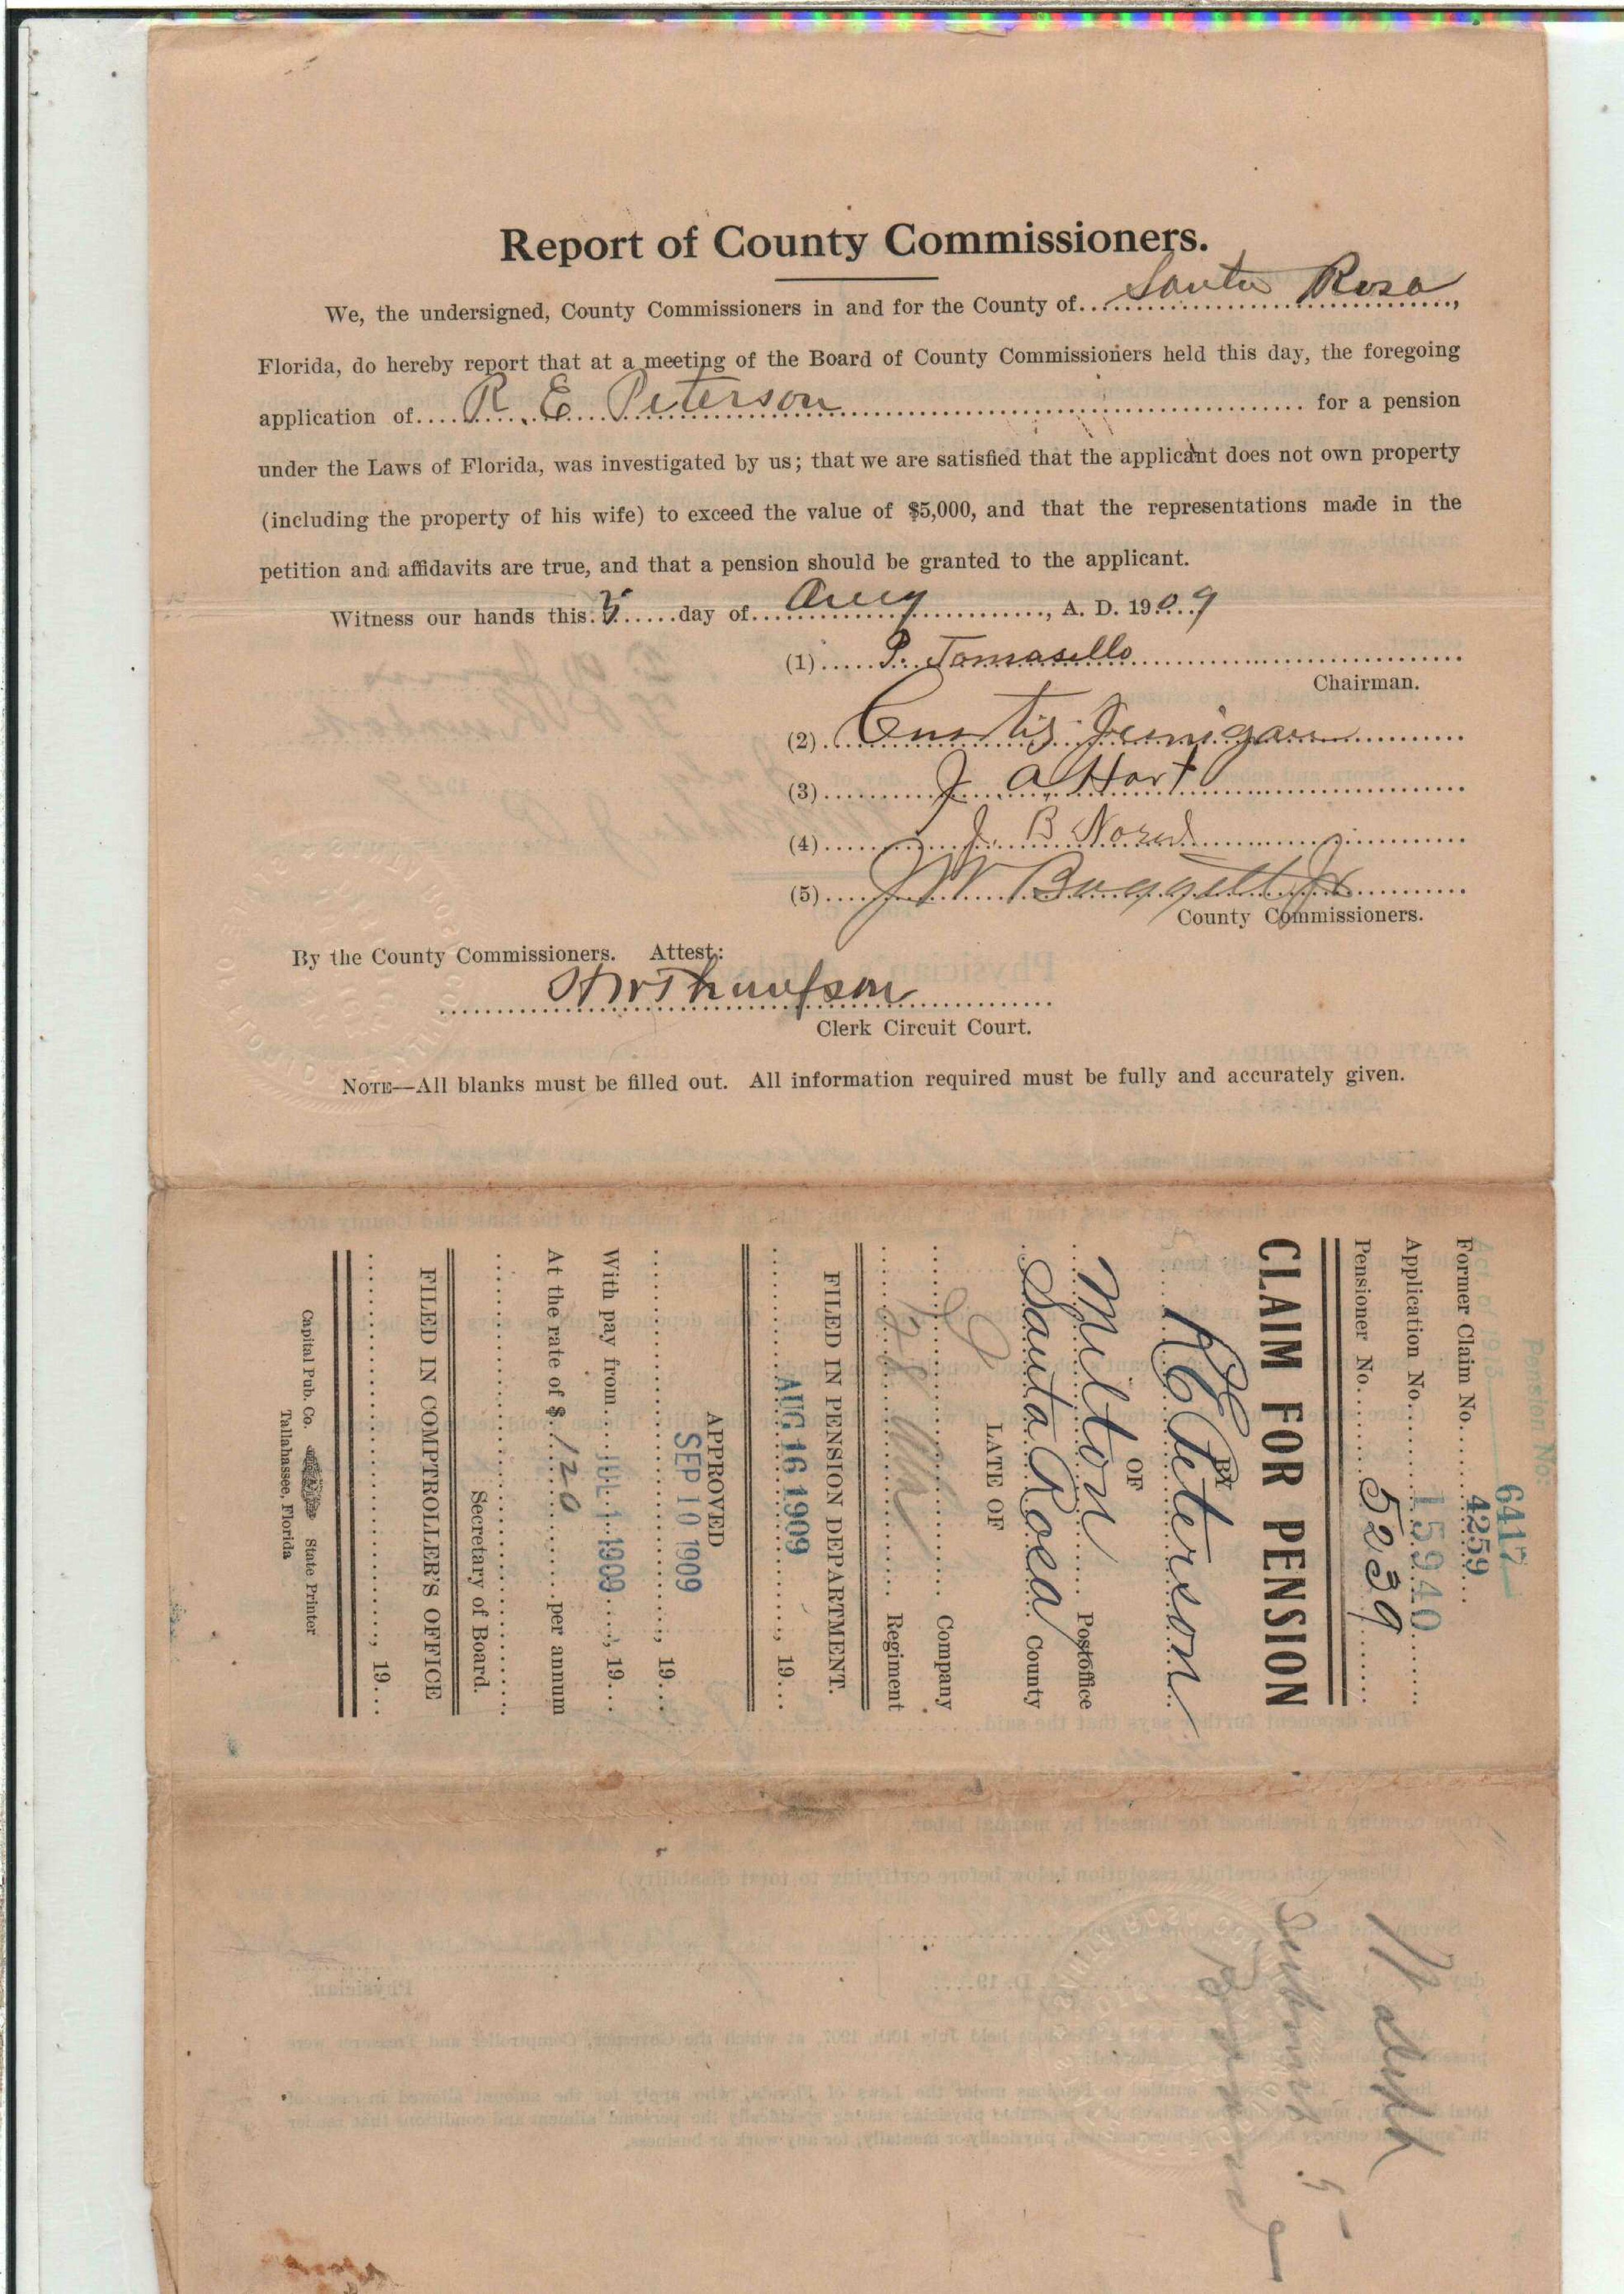 Report of County Commissioners.
We, the undersigned, County Commissioners in and for the County of Santa Rosa,
Florida, do hereby report that at a meeting of the Board of County Commissioners held this day, the foregoing
application of R. E. Peterson for a pension
under the Laws of Florida, was investigated by us; that we are satisfied that the applicant does not own property
(including the property of his wife) to exceed the value of $5,000, and that the representations made in the
petition and affidavits are true, and that a pension should be granted to the applicant.
Witness our hands this day of Aug, A. D. 1909
(1) P. Tomasello
Chairman.
(2) Curtis Jernigan
(3) J. A. Hart
(4) J. B.
(5) J W Baggett Jr
County Commissioners.
By the County Commissioners. Attest:
Clerk Circuit Court.
NOTE—All blanks must be filled out. All information required must be fully and accurately given.
Pension No.
6417
Act of 1913
Former Claim No. 4259
Application No. 15940
Pensioner No. 5239
CLAIM FOR PENSION
BY
R E Peterson
OF
Milton Postoffice
Santa Rosa County
LATE OF
Company
Regiment
FILED IN PENSION DEPARTMENT.
AUG 16 1909, 19
APPROVED
SEP 10 1909
, 19
With pay from JUL 1 1909, 19
At the rate of $ 120 per annum
Secretary of Board.
FILED IN COMPTROLLER'S OFFICE
, 19
Capital Pub. Co. State Printer
Tallahassee, Florida